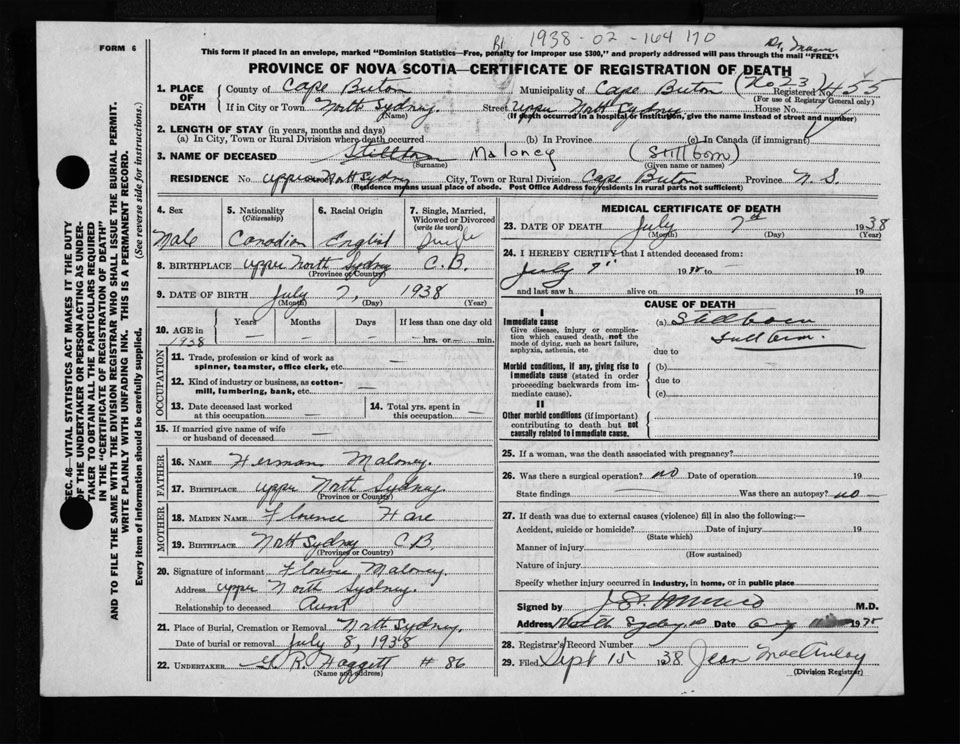 1938-02-164170
FORM 6
This form if placed in an envelope, marked "Dominion Statistics—Free, penalty for improper use $300," and properly addressed will pass through the mail "FREE"
PROVINCE OF NOVA SCOTIA—CERTIFICATE OF REGISTRATION OF DEATH
1. PLACE OF DEATH
County of Cape Breton Municipality of Cape Breton (No 23) Registered No. 455
(For use of Registrar General only)
If in City or Town North Sydney. Street Upper North Sydney House No.
(Name) (If death occurred in a hospital or institution, give the name instead of street and number)
2. LENGTH OF STAY (in years, months and days)
(a) In City, Town or Rural Division where death occurred (b) In Province (c) In Canada (if immigrant)
3. NAME OF DECEASED Stillborn Maloney (Stillborn)
(Surname) (Given name or names)
RESIDENCE No. Upper North Sydney City, Town or Rural Division Cape Breton Province N.S.
(Residence means usual place of abode. Post Office Address for residents in rural parts not sufficient)
4. Sex Male
5. Nationality (Citizenship) Canadian
6. Racial Origin English
7. Single, Married, Widowed or Divorced (write the word) Single
8. BIRTHPLACE Upper North Sydney C.B.
(Province or Country)
9. DATE OF BIRTH July 7, 1938
(Month) (Day) (Year)
10. AGE in 1938
Years — Months — Days — If less than one day old — hrs. or — min.
OCCUPATION
11. Trade, profession or kind of work as spinner, teamster, office clerk, etc. —
12. Kind of industry or business, as cotton-mill, lumbering, bank, etc. —
13. Date deceased last worked at this occupation —
14. Total yrs. spent in this occupation —
15. If married give name of wife or husband of deceased —
FATHER
16. NAME Herman Maloney.
17. BIRTHPLACE Upper North Sydney.
(Province or Country)
MOTHER
18. MAIDEN NAME Florence Hare
19. BIRTHPLACE North Sydney C.B.
(Province or Country)
20. Signature of informant Florence Maloney.
Address Upper North Sydney.
Relationship to deceased Aunt
21. Place of Burial, Cremation or Removal North Sydney.
Date of burial or removal July 8, 1938
22. UNDERTAKER R. Haggett # 86
(Name and address)
MEDICAL CERTIFICATE OF DEATH
23. DATE OF DEATH July 7 1938
(Month) (Day) (Year)
24. I HEREBY CERTIFY that I attended deceased from:
July 7 19 to — 19
and last saw h alive on — 19
CAUSE OF DEATH
I
Immediate cause
Give disease, injury or complication which caused death, not the mode of dying, such as heart failure, asphyxia, asthenia, etc
(a) Stillborn
Stillborn.
due to
Morbid conditions, if any, giving rise to immediate cause (stated in order proceeding backwards from immediate cause).
(b)
due to
(c)
II
Other morbid conditions (if important) contributing to death but not causally related to immediate cause.
25. If a woman, was the death associated with pregnancy?
26. Was there a surgical operation? no Date of operation 19
State findings — Was there an autopsy? no —
27. If death was due to external causes (violence) fill in also the following:—
Accident, suicide or homicide? Date of injury 19
(State which)
Manner of injury
(How sustained)
Nature of injury
Specify whether injury occurred in industry, in home, or in public place
Signed by M.D.
Address North Sydney Date 19
28. Registrar's Record Number
29. Filed Sept 15 1938 Jean MacKinlay
(Division Registrar)
SEC. 46—VITAL STATISTICS ACT MAKES IT THE DUTY
OF THE UNDERTAKER OR PERSON ACTING AS UNDERTAKER
TO OBTAIN ALL THE PARTICULARS REQUIRED
IN THE "CERTIFICATE OF REGISTRATION OF DEATH"
AND TO FILE THE SAME WITH THE DIVISION REGISTRAR WHO SHALL ISSUE THE BURIAL PERMIT.
WRITE PLAINLY WITH UNFADING INK. THIS IS A PERMANENT RECORD.
Every item of information should be carefully supplied. (See reverse side for instructions.)